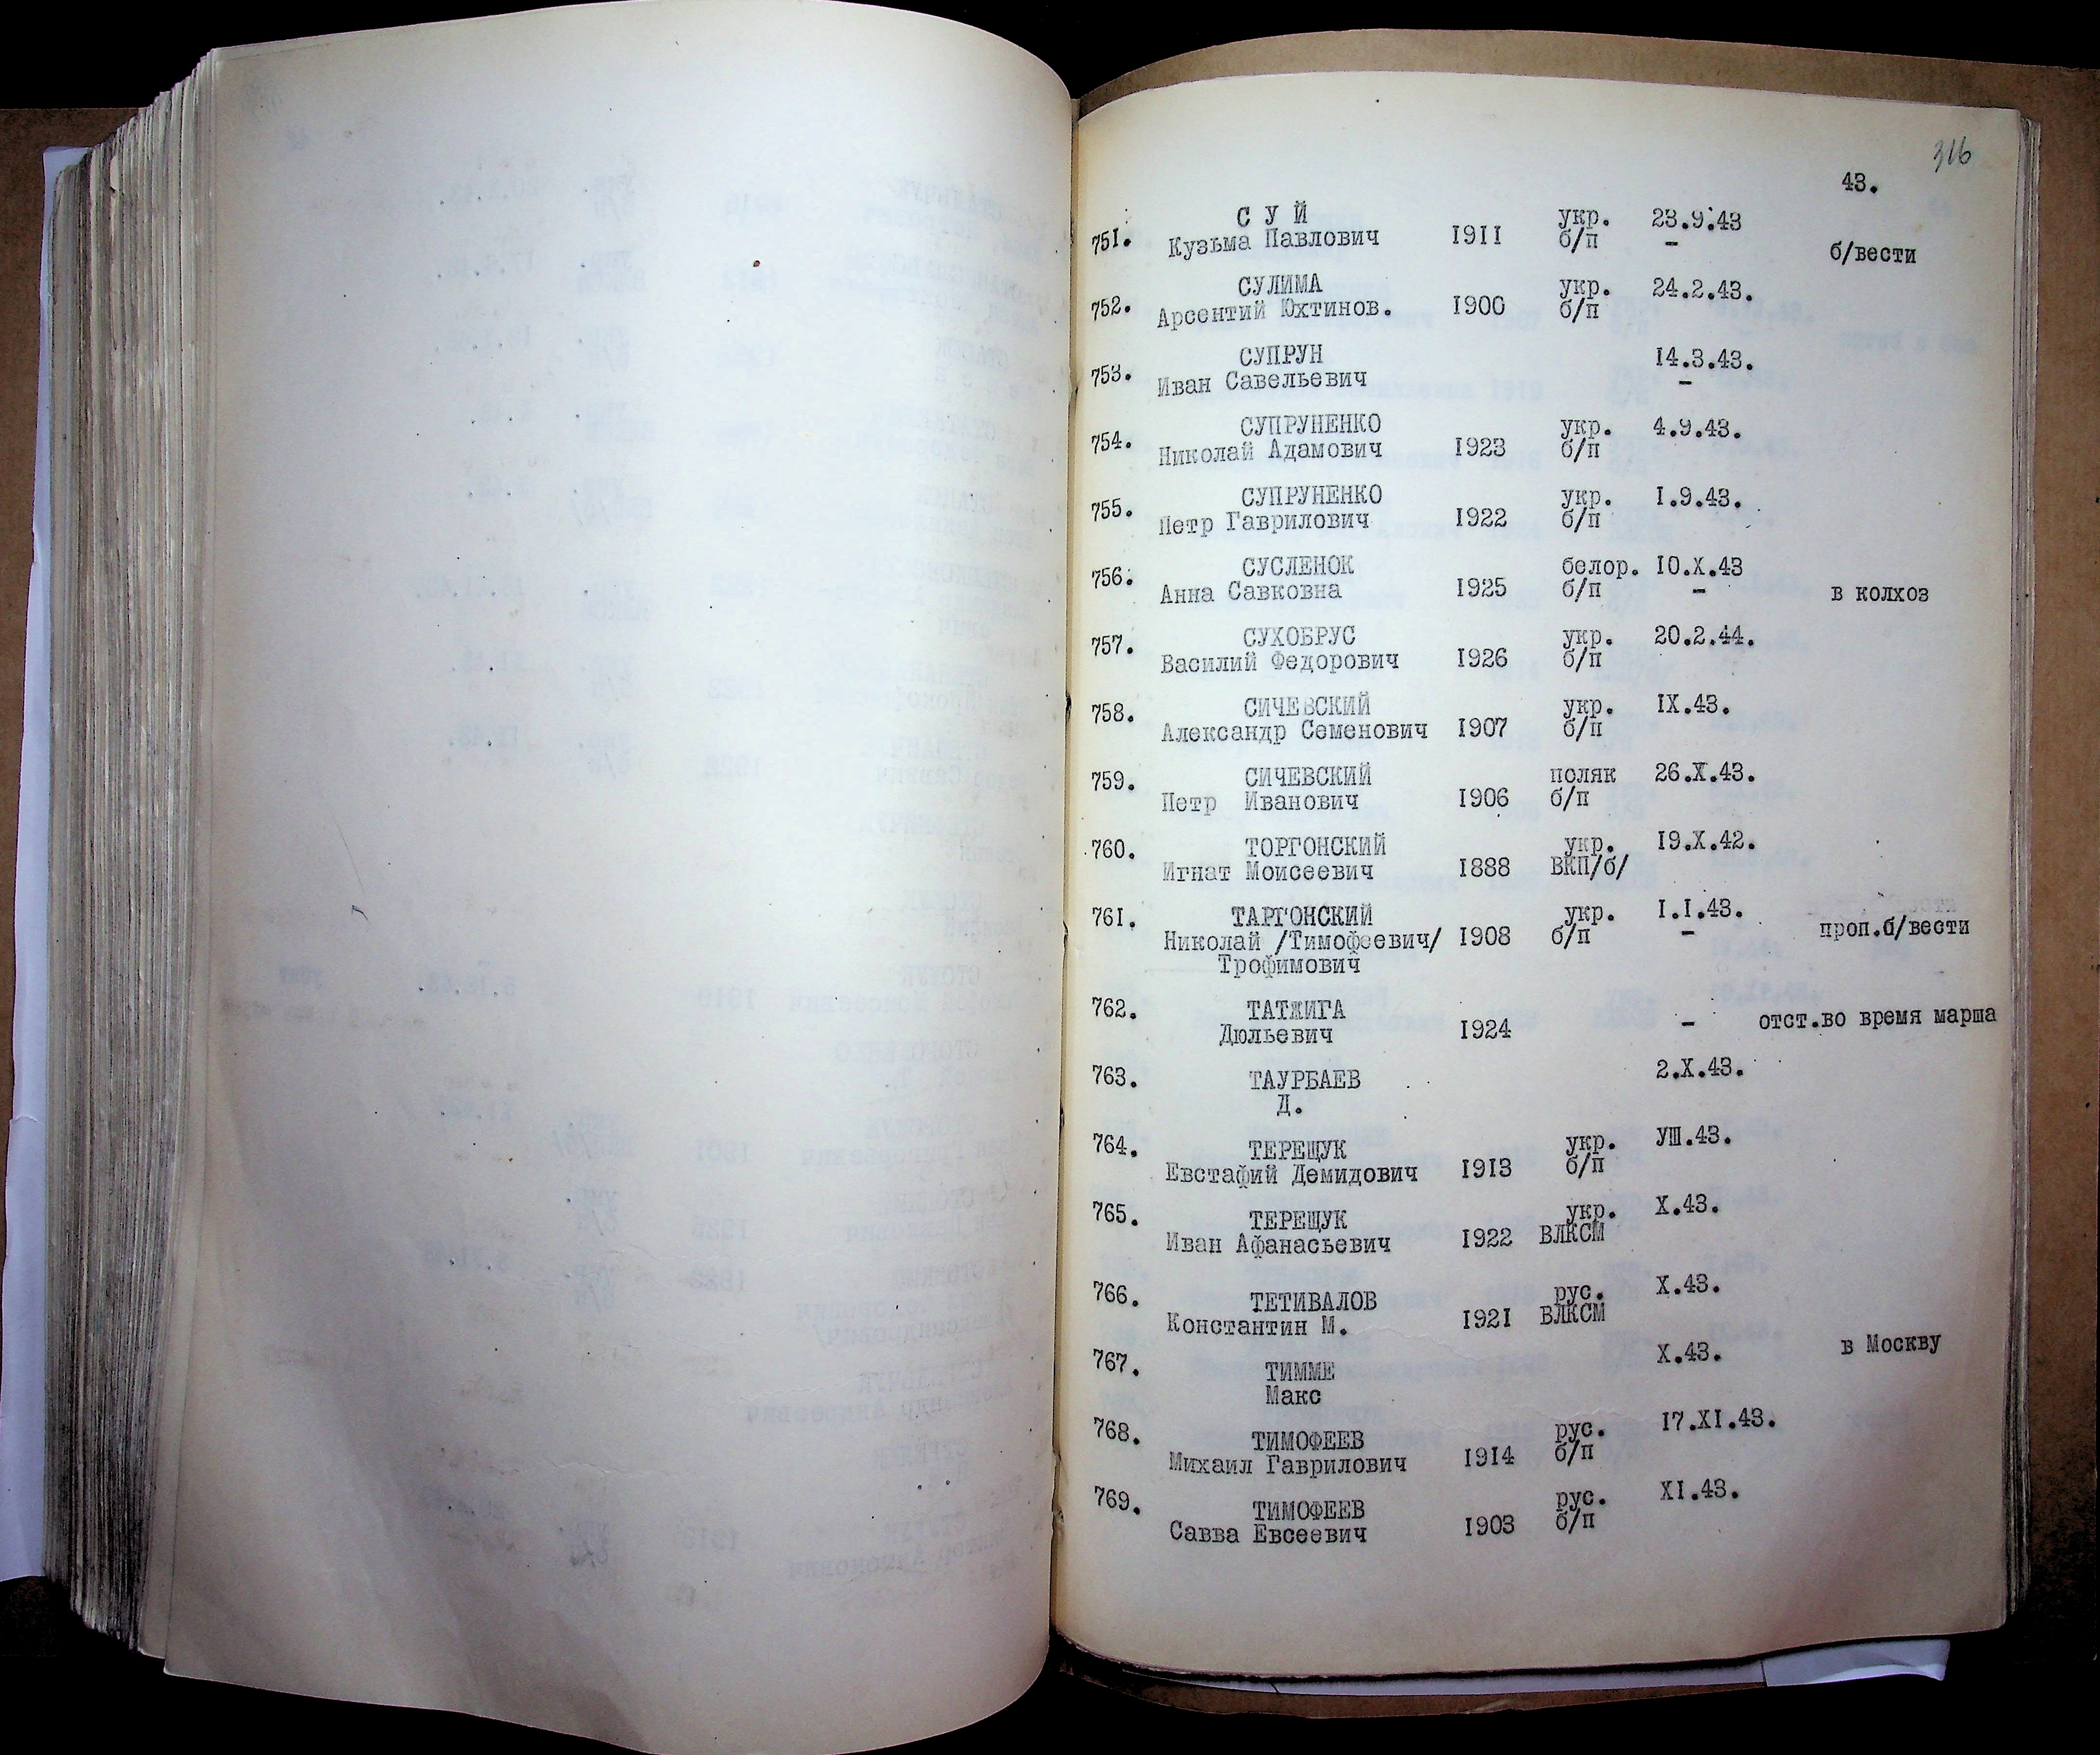 316
43.
751. СУЙ укр. 23.9.43
Кузьма Павлович 1911 б/п - б/вести
752. СУЛИМА укр. 24.2.43.
Арсентий Юхтинов. 1900 б/п
753. СУПРУН 14.3.43.
Иван Савельевич -
754. СУПРУНЕНКО укр. 4.9.43.
Николай Адамович 1923 б/п
755. СУПРУНЕНКО укр. 1.9.43.
Петр Гаврилович 1922 б/п
756. СУСЛЕНОК белор. 10.X.43
Анна Савковна 1925 б/п - в колхоз
757. СУХОБРУС укр. 20.2.44.
Василий Федорович 1926 б/п
758. СИЧЕВСКИЙ укр. IX.43.
Александр Семенович 1907 б/п
759. СИЧЕВСКИЙ поляк 26.X.43.
Петр Иванович 1906 б/п
760. ТОРГОНСКИЙ укр. 19.X.42.
Игнат Моисеевич 1888 ВКП/б/
761. ТАРГОНСКИЙ укр. 1.1.43.
Николай /Тимофеевич/ 1908 б/п - проп.б/вести
Трофимович
762. ТАТЖИГА
Дюльевич 1924 - отст.во время марша
763. ТАУРБАЕВ 2.X.43.
Д.
764. ТЕРЕЩУК укр. УШ.43.
Евстафий Демидович 1913 б/п
765. ТЕРЕЩУК укр. X.43.
Иван Афанасьевич 1922 ВЛКСМ
766. ТЕТИВАЛОВ рус. X.43.
Константин М. 1921 ВЛКСМ
767. ТИММЕ X.43. в Москву
Макс
768. ТИМОФЕЕВ рус. 17.XI.43.
Михаил Гаврилович 1914 б/п
769. ТИМОФЕЕВ рус. XI.43.
Савва Евсеевич 1903 б/п